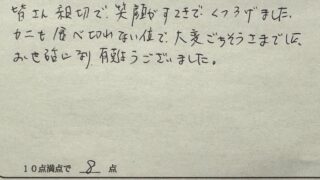 皆さん親切で、笑顔がすてきでくつろげました。
カニも食べ切れない位で、大変ごちそうさまでした、
お世話になり有難うございました。
10点満点で 8 点